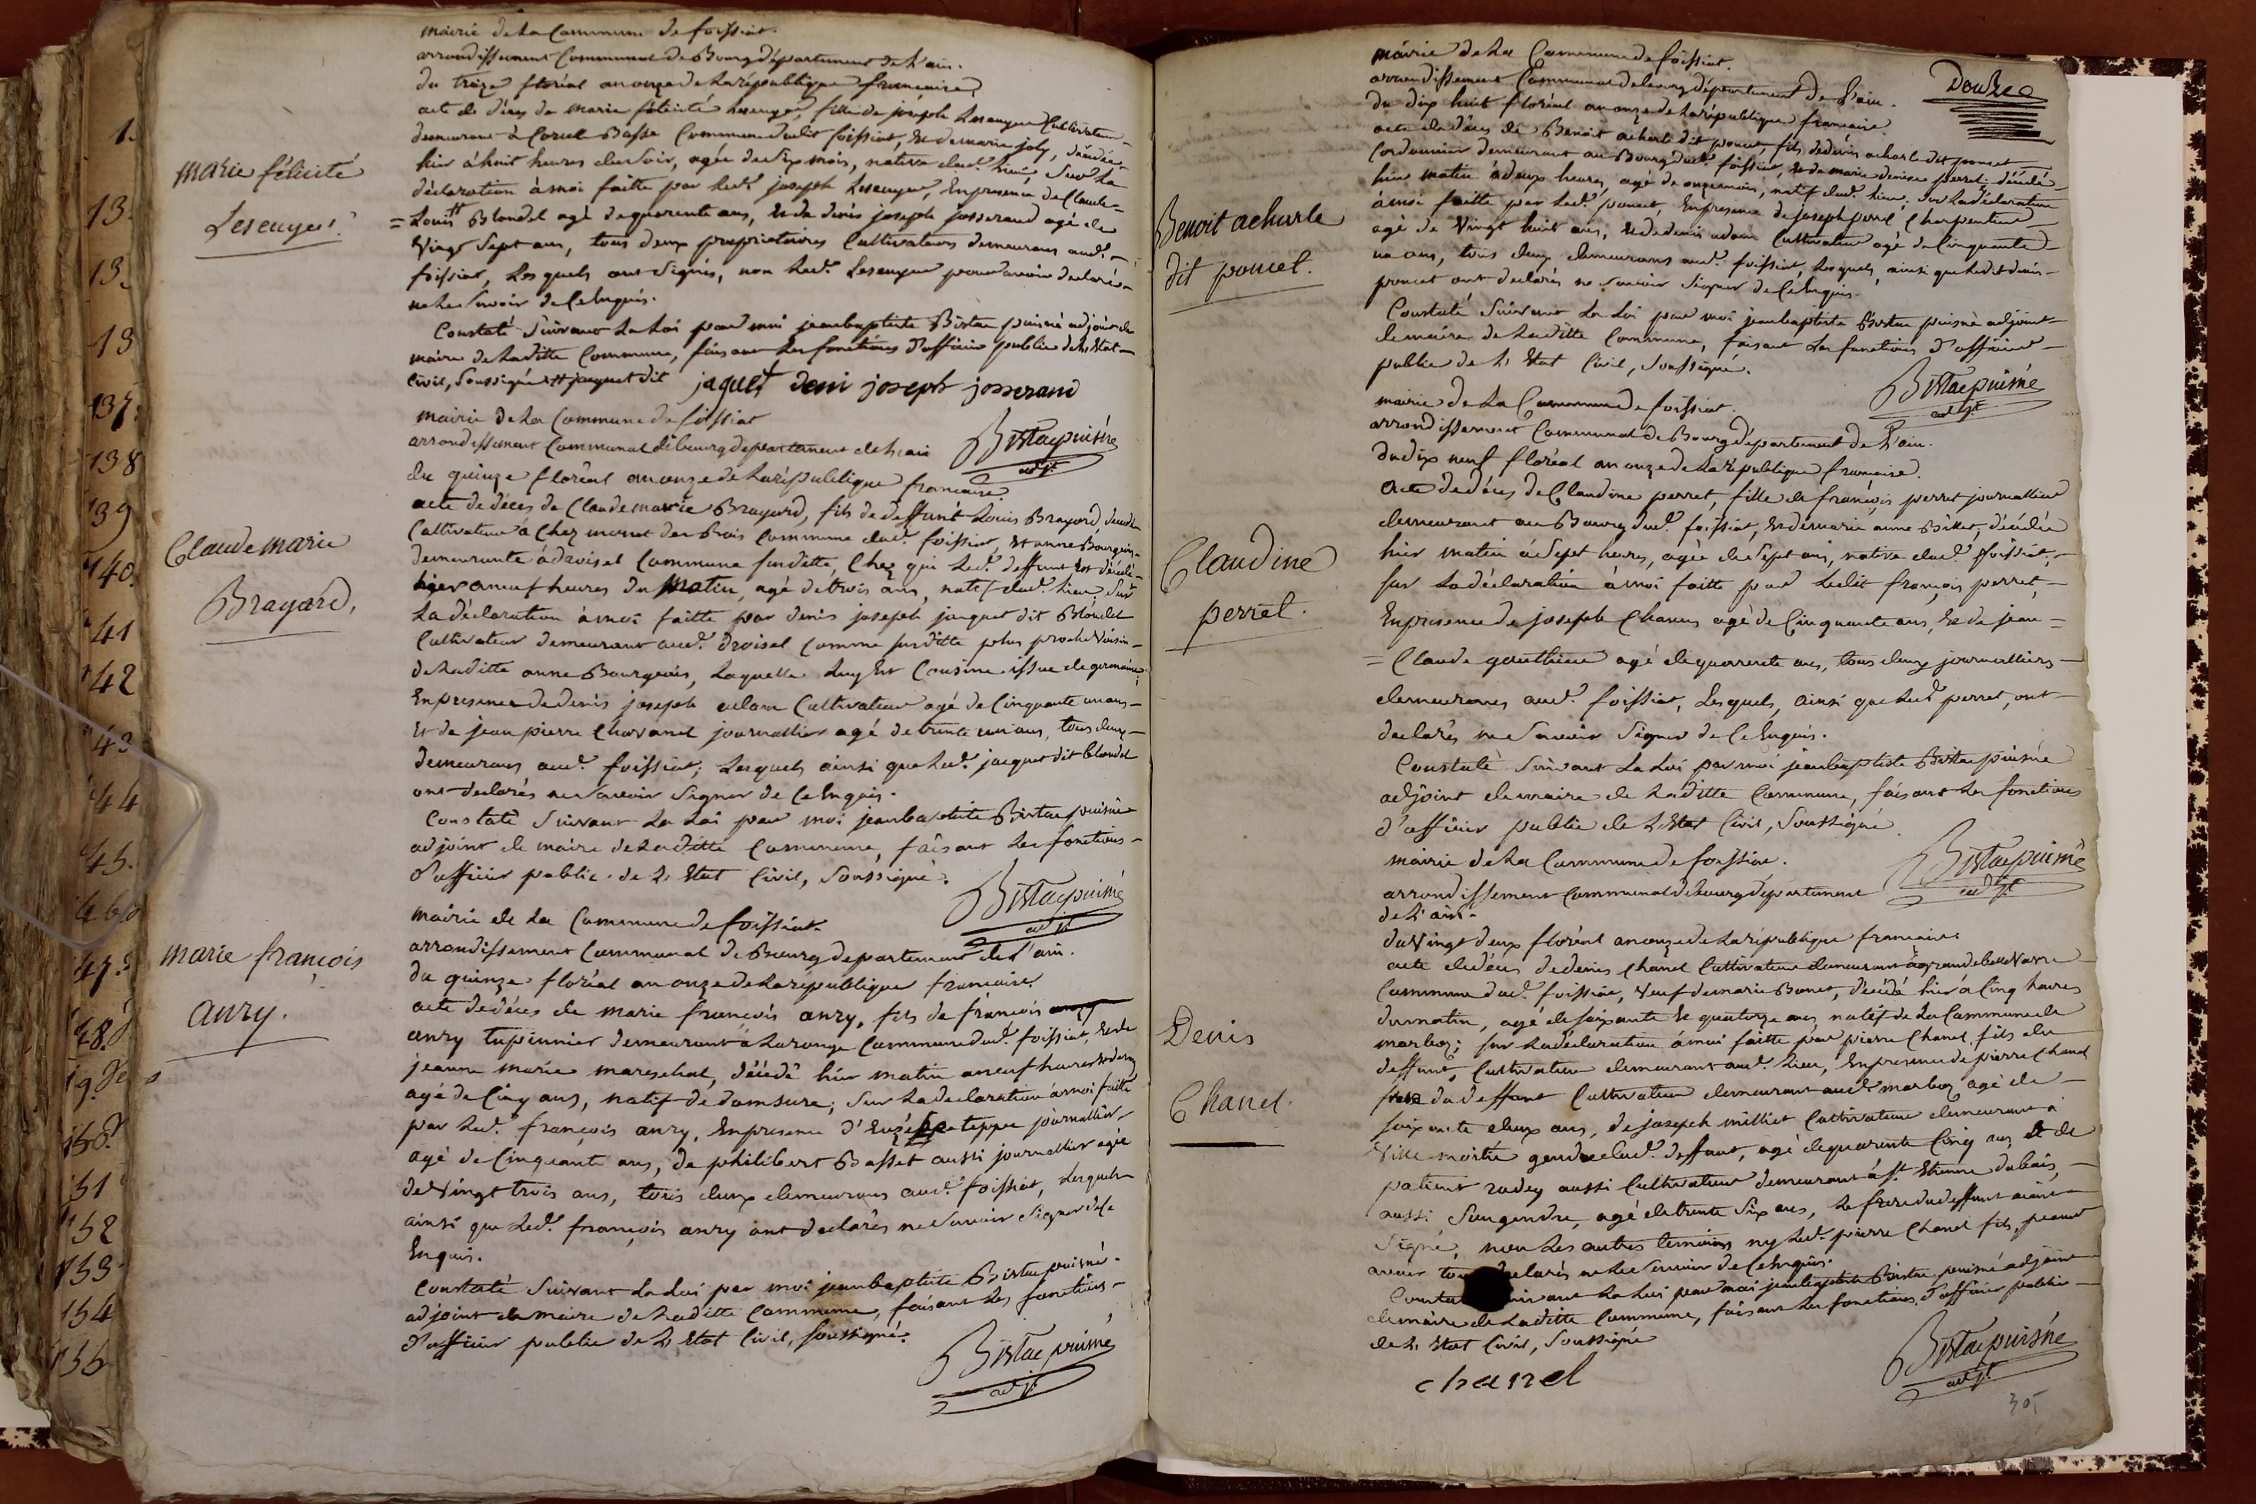 1.
13.
13.
13
137.
138
139
140.
41
142
43
44
45.
46
47.
48.
9.
150.
151
152
153.
154
155
marie félicité
Lescuyer.
mairie de la Commune de foissiat.
arrondissement Communal de Bourg département de l'ain.
du treize floréal an onze de la république francaise,
acte de décés de marie félicité Lescuyer, fille de joseph Lescuyer Cultivateur
demeurant à Basse Commune dudit foissiat, et de marie joly, décédée
hier à huit heures du soir, agée de six mois, native dud. lieu, sur la
déclaration à moi faitte par led. joseph Lescuyer, En presence de Claude =
= Louis # Blondel agé de quarente ans, et de denis joseph josserand agé de
vingt sept ans, tous deux proprietaires Cultivateurs demeurans aud.
foissiat, Lesquels ont signés, non led. Lescuyer pour avoir declaré
ne le savoir de Ce Enquis.
Constaté suivant la Loi par moi jean baptiste Bistac puisné adjoint de
maire de Laditte Commune, faisant les fonctions d'officier public de l'Etat
Civil, soussigné # jaquet dit jaquet deni joseph josserand
Bistac puisné
adjt
Claude marie
Brayard,
mairie de la Commune de foissiat
arrondissement Communal de bourg departement de l'ain
du quinze floréal an onze de la république francaise.
acte de déces de Claude marie Brayard, fils de deffunt Louis Brayard,
Cultivateur à Chez monet des Bois Commune dud. foissiat, et anne Bourgeois
demeurante à droisel Commune susditte, Chez qui led. deffunt est décédé
hier a neuf heures du matin, agé de trois ans, natif dud. lieu. sur
la déclaration à moi faitte par denis joseph jaquet dit Blondel
Cultivateur demeurant aud. droisel Comme susditte plus proche voisin
de laditte anne Bourgeois, Laquelle luy Est Cousine issue de germaine,
En presence de denis joseph adam Cultivateur agé de Cinquante un ans
et de jean pierre Chavanel journallier agé de trente un ans, tous deux
demeurans aud. foissiat; Lesquels ainsi que led. jacquet dit blondel
ont declarés ne savoir signer de Ce Enquis.
Constaté suivant la Loi par moi jean baptiste Bistac puisné
adjoint de maire de laditte Commune, faisant les fonctions
d'officier public de l'Etat Civil, soussigné.
Bistac puisné
adjt
marie françois
anry.
mairie de la Commune de foissiat.
arrondissement Communal de Bourg departement de l'ain.
du quinze floréal an onze de la république francaise.
acte de déces de marie françois anry, fils de françois anry
anry tupinnier demeurant à Commune dud. foissiat, et de
jeanne marie mareschal, décédé hier matin a neuf heures
agé de Cinq ans, natif de domsure; sur la declaration à moi faitte
par led. françois anry, En presence d' teppe journallier
agé de Cinquante ans, de philibert Basset aussi journallier agé
de vingt trois ans, tous deux demeurans aud. foissiat, Lesquels
ainsi que led. françois anry ont declarés ne savoir signer de Ce
Enquis.
Constaté suivant la Loi par moi jean baptiste Bistac puisné
adjoint de maire de laditte Commune, faisant les fonctions
d'officier public de l'Etat Civil, soussigné.
Bistac puisné
adjt
Double
Benoit acharle
dit poncet.
mairie de la Commune de foissiat.
arrondissement Communal de bourg département de l'ain.
du dix huit floréal an onze de la république francaise
acte de déces de Benoit acharle dit poncet, fils de denis acharle dit poncet
Cordonnier demeurant au Bourg dud. foissiat, et de marie denise perret; décédé
hier matin à deux heures, agé de onze mois, natif dud. lieu. sur la déclaration
à moi faitte par led. poncet, En presence de joseph Charpentier
agé de vingt huit ans, et de denis adam Cultivateur agé de Cinquante
un ans, tous deux demeurans aud. foissiat, lesquels, ainsi que ledit denis
poncet ont declarés ne savoir signer de Ce Enquis.
Constaté suivant la Loi par moi jean baptiste Bistac puisné adjoint
de maire de laditte Commune, faisant les fonctions d'officier
public de l'Etat Civil, soussigné.
Bistac puisné
adjt
Claudine
perret.
mairie de la Commune de foissiat.
arrondissement Communal de Bourg département de l'ain.
du dix neuf floréal an onze de la république francaise.
acte de déces de Claudine perret, fille de françois perret journallier
demeurant au Bourg dud. foissiat, et de marie anne Billet, décédée
hier matin à sept heures, agée de sept ans, native dud. foissiat;
sur la déclaration à moi faitte par ledit françois perret,
En presence de joseph Chanus agé de Cinquante ans, et de jean =
= Claude gauthier agé de quarente ans, tous deux journalliers
demeurans aud. foissiat, Lesquels, ainsi que led. perret, ont
declarés ne savoir signer de Ce Enquis.
Constaté suivant la Loi par moi jean baptiste Bistac puisné
adjoint de maire de laditte Commune, faisant les fonctions
d'officier public de l'Etat Civil, soussigné
Bistac puisné
adjt
Denis
Chanel.
mairie de la Commune de foissiat.
arrondissement Communal de bourg département
de l'ain.
du vingt deux floréal an onze de la république francaise.
acte de déces de denis Chanel Cultivateur demeurant à
Commune dud. foissiat, veuf de marie Bonet, décédé hier à Cinq heures
du matin, agé de soixante et quatorze ans, natif de la Commune de
marboz; sur la déclaration à moi faitte par pierre Chanel, fils du
deffunt, Cultivateur demeurant aud. lieu, En presence de pierre Chanel
frere du deffunt Cultivateur demeurant aud. marboz agé de
soixante deux ans, de joseph milliet Cultivateur demeurant à
Ville moitié gendre dud. deffunt, agé de quarente Cinq ans et de
patient rudey aussi Cultivateur demeurant à St Etienne du bois,
aussi son gendre, agé de trente six ans, le frere du deffunt aiant
signé, non les autres temoins ny led. pierre Chanel fils, pour
avoir declarés ne le savoir de Ce Enquis.
suivant la Loi par moi jean baptiste Bistac puisné adjoint
de maire de laditte Commune, faisant les fonctions d'officier public
de l'Etat Civil, soussigné
chanel
Bistac puisné
adjt
305